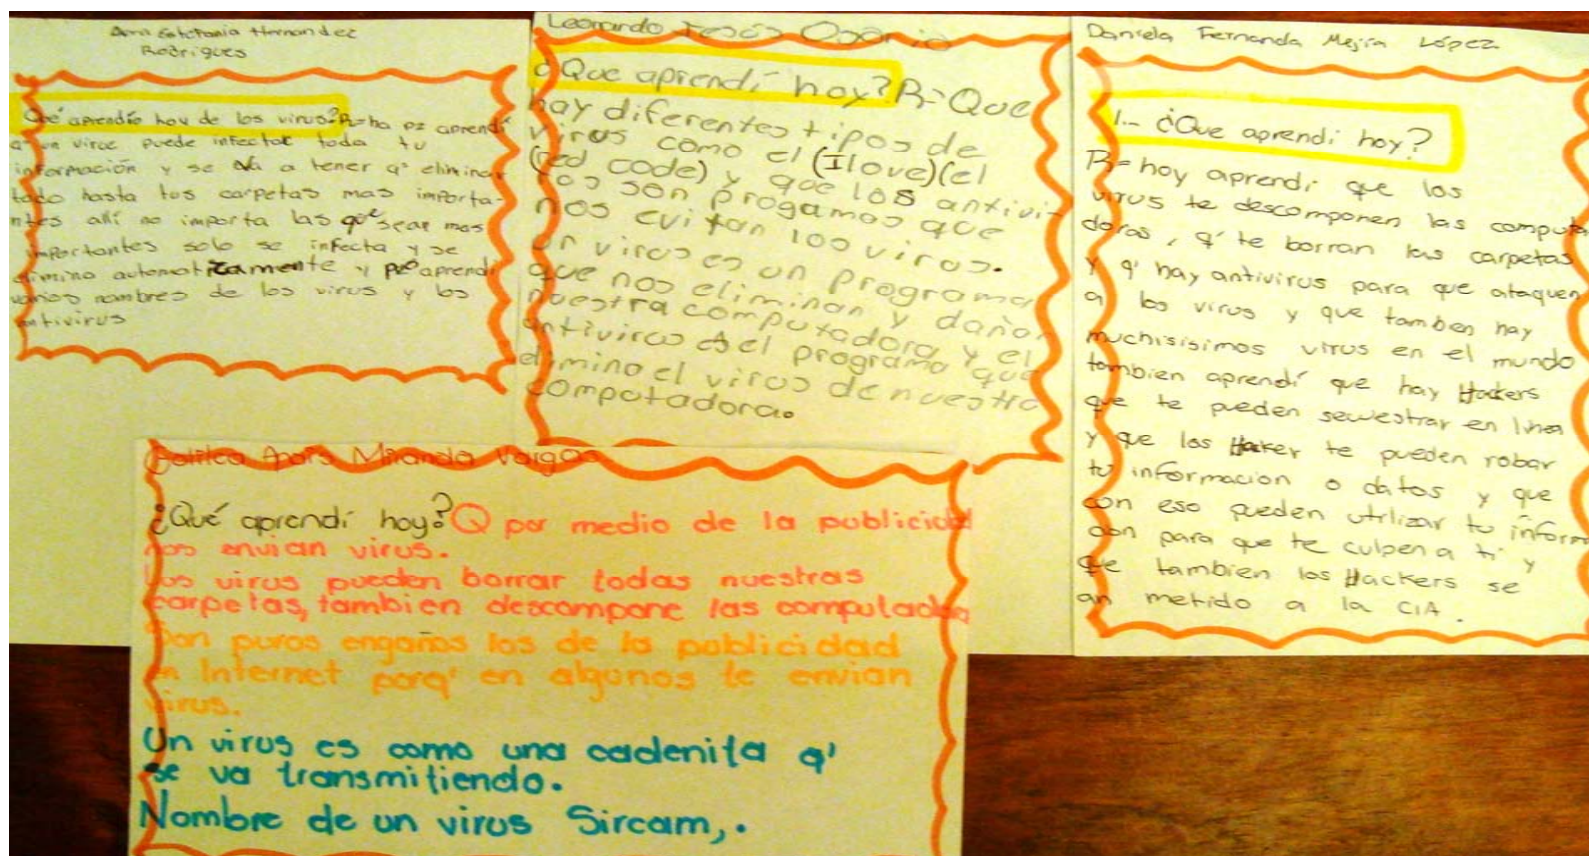 Hernandez
Rodrigues
Qué aprendío hoy de los virus? R= ha pz aprendí
q' un virue puede infectar toda tu
información y se va a tener q' eliminar
todo hasta tus carpetas mas importa-
ntes allí no importa las que sean mas
importantes solo se infecta y se
elimina automaticamente y aprendí
varios nombres de los virus y los
antivirus
Leonardo Jesús Osorio
¿Que aprendí hoy? R= Que
hay diferentes tipos de
virus como el (I love)(el
red code) y que los antivi-
ros son progamas que
nos evitan los virus.
Un virus es un programa
que nos eliminan y daña
nuestra computadora y el
antivirus es el programa que
elimina el virus de nuestra
computadora.
Daniela Fernanda Mejía López
1.- ¿Que aprendi hoy?
R= hoy aprendi que los
virus te descomponen las computa
doras, q' te borran las carpetas
y q' hay antivirus para que ataquen
a los virus y que tambien hay
muchisisimos virus en el mundo
tambien aprendí que hay Hackers
que te pueden secuestrar en linea
y que los Haker te pueden robar
tu informacion o datos y que
con eso pueden utilizar tu inform
con para que te culpen a ti y
que tambien los Hackers se
an metido a la CIA.
Anaís Miranda Vargas
¿Qué aprendí hoy? Q por medio de la publicidad
nos envian virus.
Los virus pueden borrar todas nuestras
carpetas, tambien descompone las computadoras
Son puros engaños los de la publicidad
en Internet porq' en algunos te envian
virus.
Un virus es como una cadenita q'
se va transmitiendo.
Nombre de un virus Sircam,.